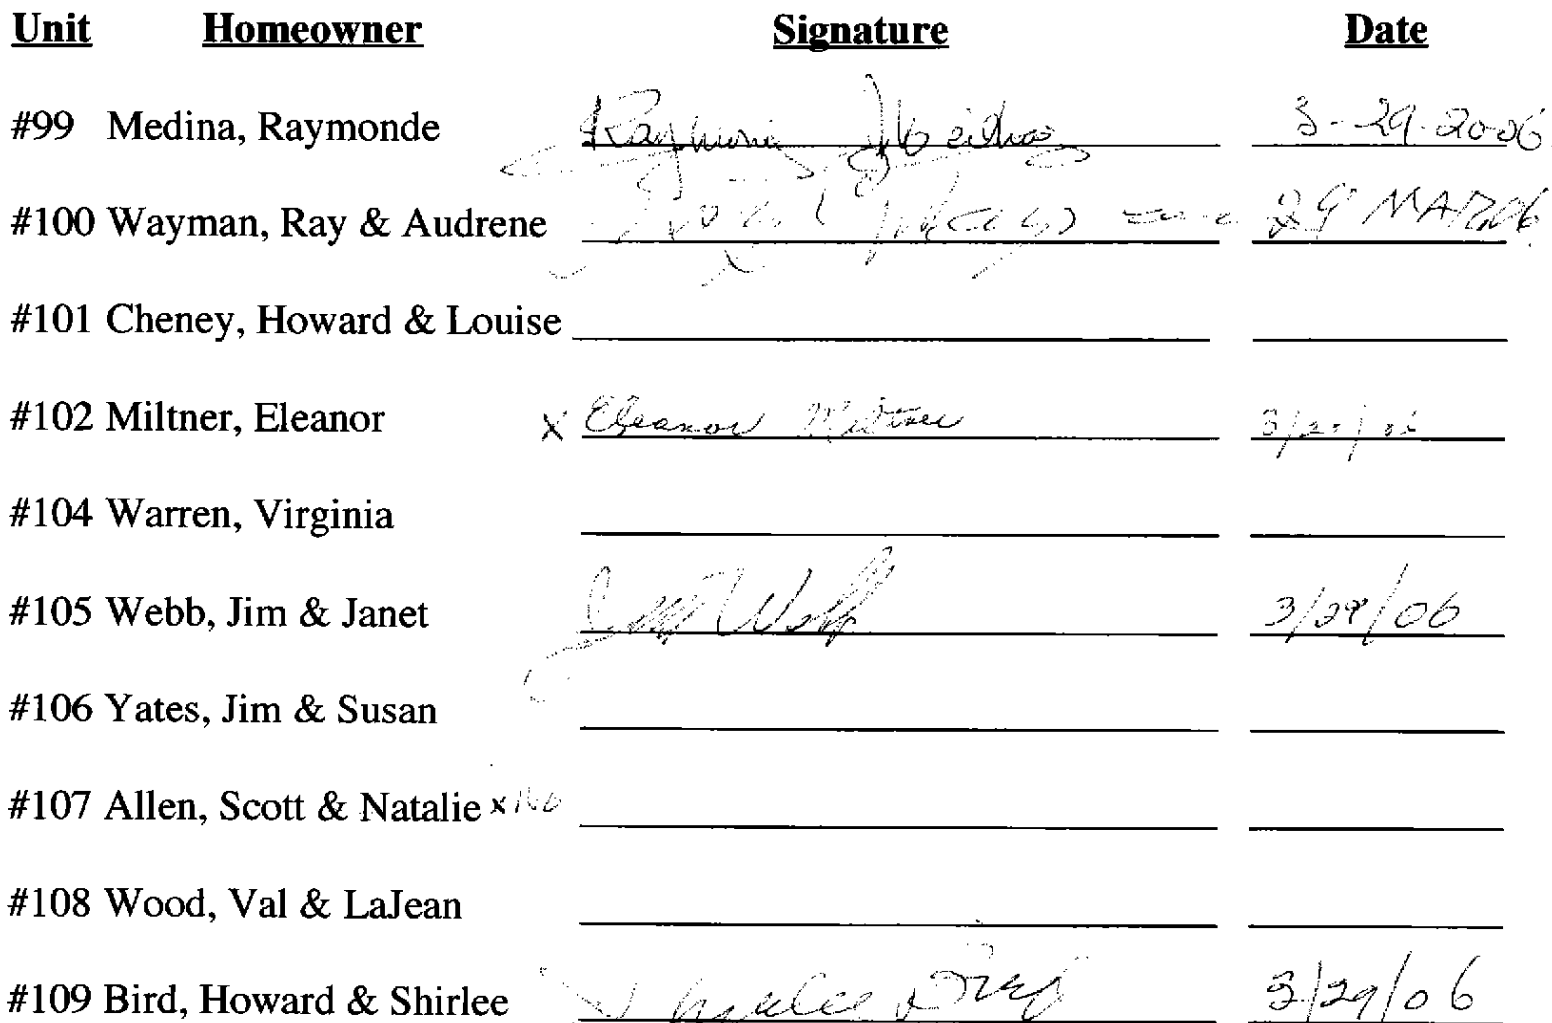 Unit Homeowner Signature Date
#99 Medina, Raymonde 3-29-2006
#100 Wayman, Ray & Audrene 29 MAR 06
#101 Cheney, Howard & Louise
#102 Miltner, Eleanor x Eleanor Miltner
#104 Warren, Virginia
#105 Webb, Jim & Janet Webb 3/29/06
#106 Yates, Jim & Susan
#107 Allen, Scott & Natalie x No
#108 Wood, Val & LaJean
#109 Bird, Howard & Shirlee Shirlee Bird 3/29/06